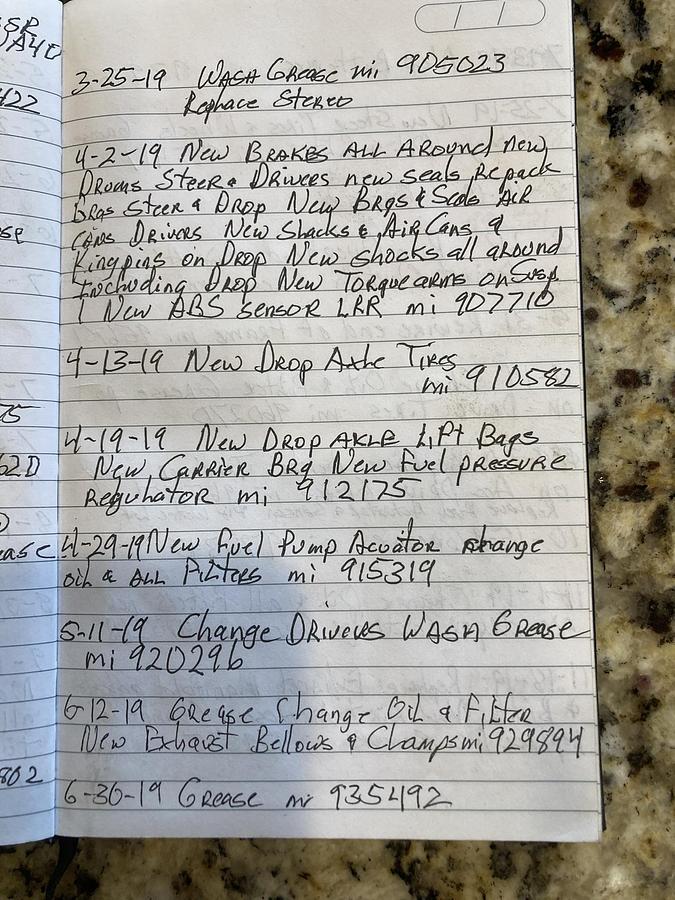 3-25-19 Wash Grease mi 905023
Rephace Stereo
4-2-19 New Brakes All Around new
Drums Steer & Drivers new seals, Repack
Brgs Steer & Drop New Brgs & Seals Air
Cans Drivers New Slacks & Air Cans &
Kingpins on Drop New shocks all around
Including Drop New Torque arms on Susp
1 New ABS sensor LRR mi 907710
4-13-19 New Drop Axle Tires
mi 910582
4-19-19 New Drop Axle Lift Bags
New Carrier Brg New Fuel pressure
Regulator mi 912175
4-29-19 New Fuel Pump Acuator change
oil & All Filters mi 915319
5-11-19 Change Drivers Wash Grease
mi 920296
6-12-19 Grease Change Oil & Filter
New Exhaust Bellows & Champs mi 929894
6-30-19 Grease mi 935492